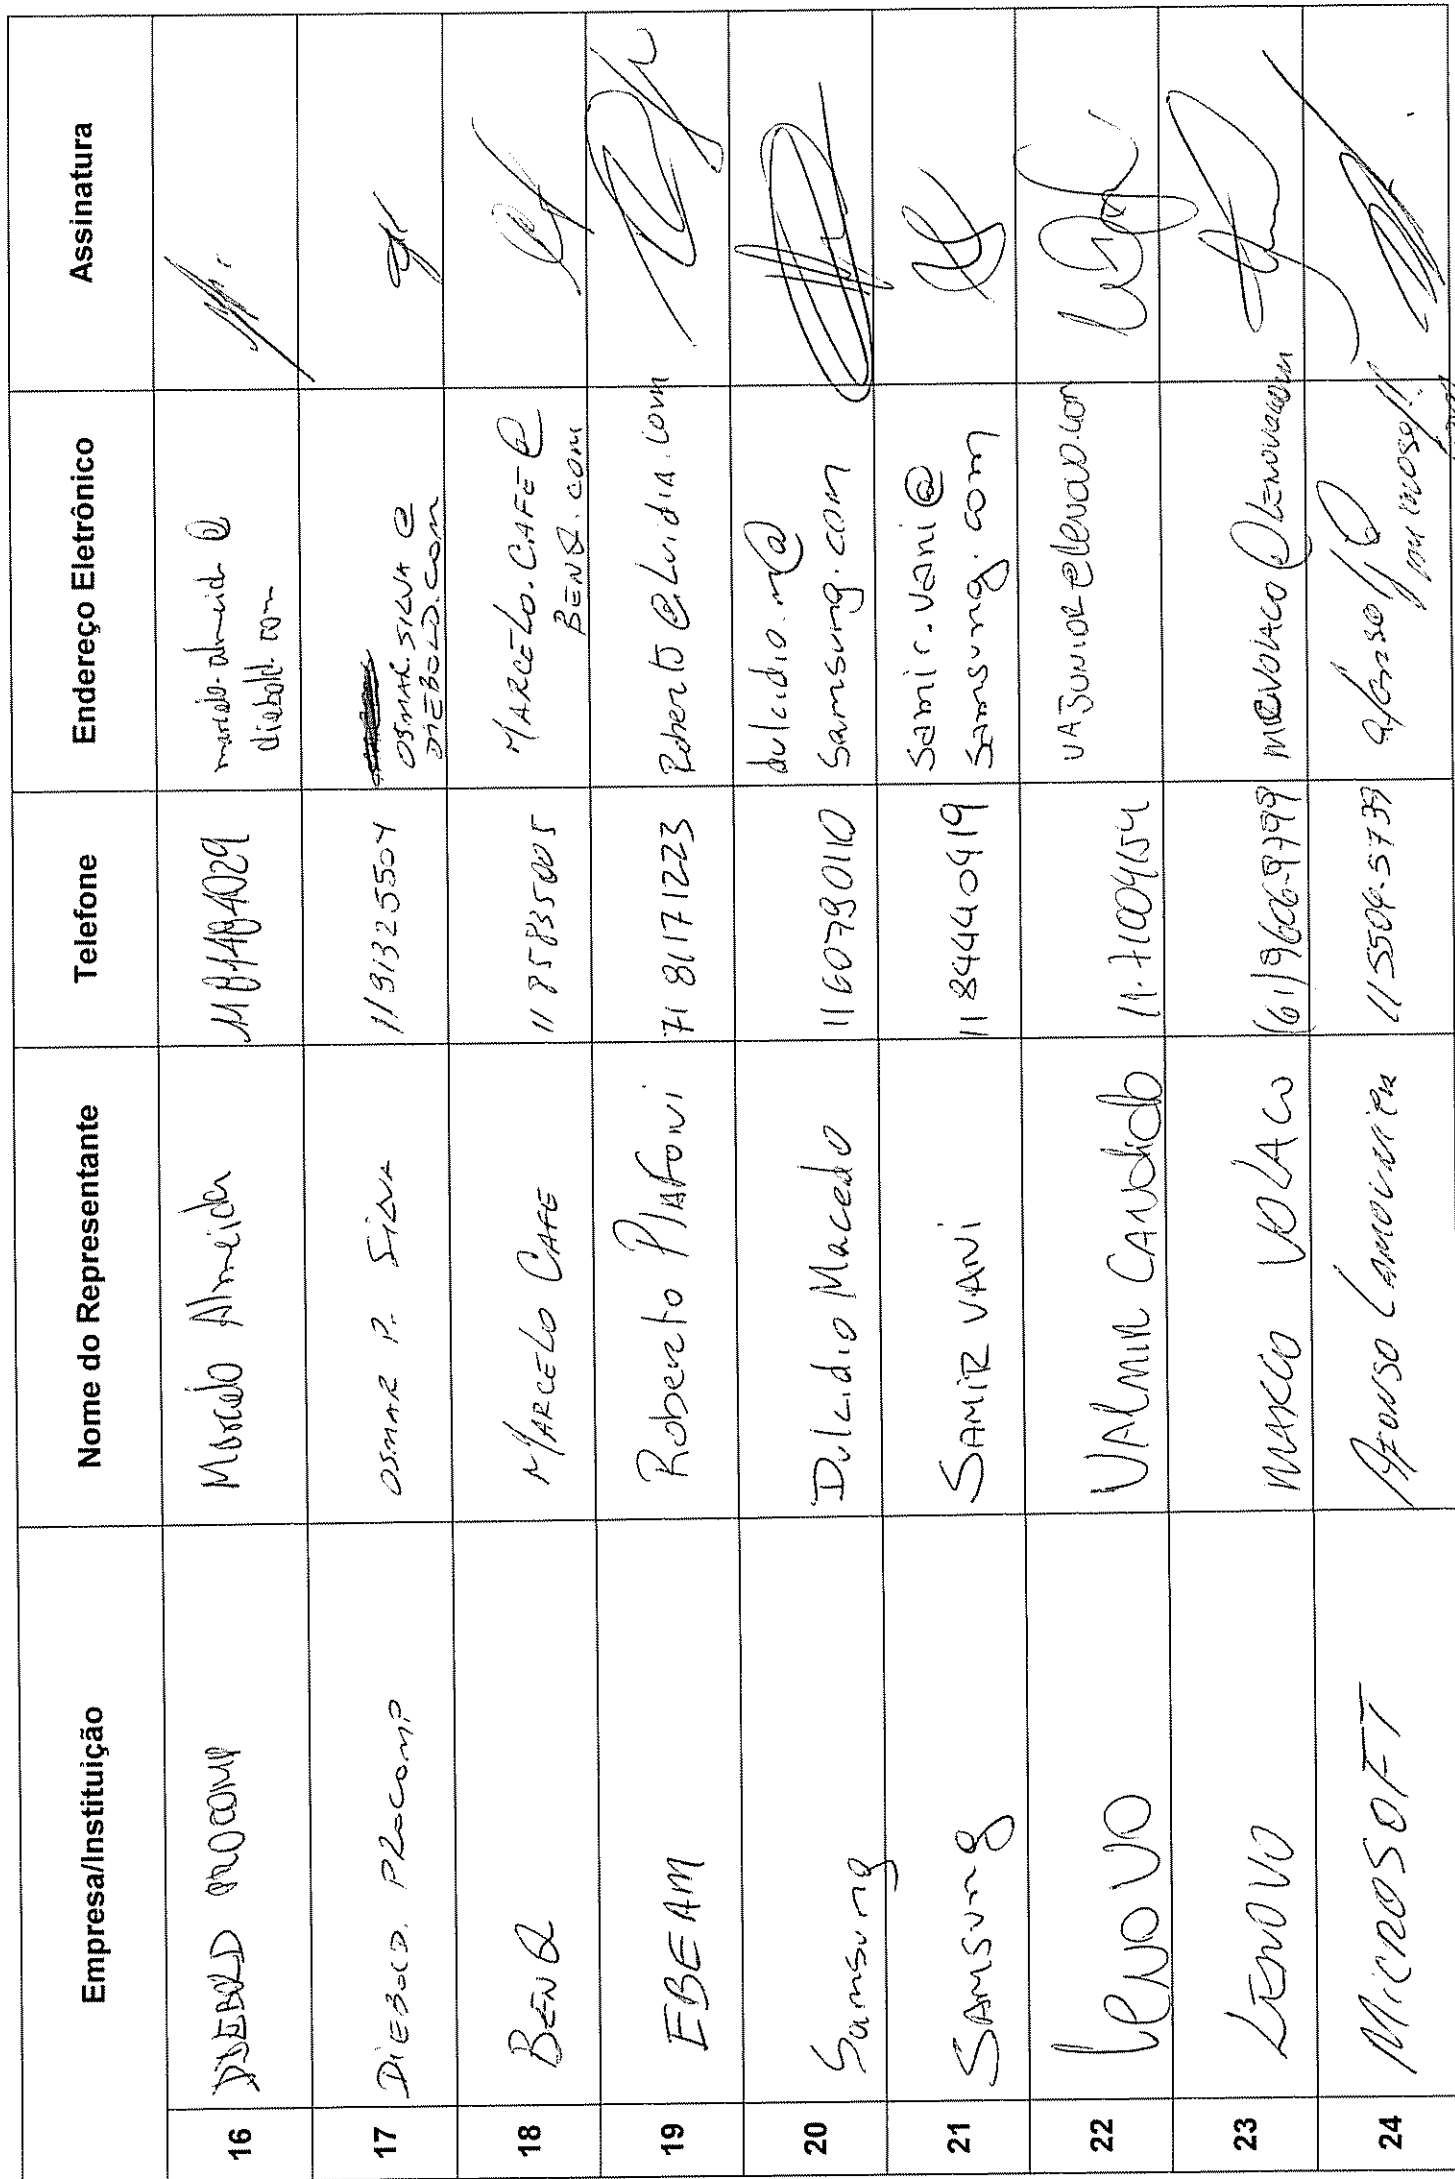 Empresa/Instituição Nome do Representante Telefone Endereço Eletrônico Assinatura
16 DIEBOLD PROCOMP Marcelo Almeida marcelo.almeida@
diebold.com
17 DIEBOLD PROCOMP OSMAR P. SILVA 1191325504 OSMAR.SILVA@
DIEBOLD.COM
18 BENQ MARCELO CAFE 11 85835005 MARCELO.CAFE@
BENQ.COM
19 EBEAM Roberto Plafoni 71 81171223 Roberto@Luidia.com
20 Samsung Dulcidio Macedo 11 60790110 dulcidio.m@
samsung.com
21 SAMSUNG SAMIR VANI 11 84440419 samir.vani@
samsung.com
22 lenovo VALMIR CANDIDO 11.71009154 VAJUNIOR@lenovo.com
23 LENOVO MARCO VOLACO (61)9606-9799 MEVOLACO@LENOVO.COM
24 MICROSOFT Afonso 11 5504-5739